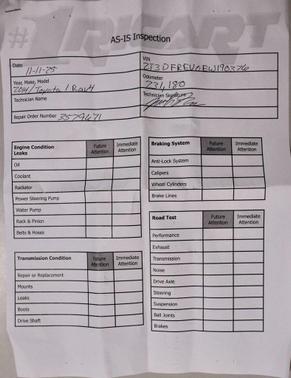 AS-IS Inspection
Date
11-11-25
VIN
Year, Make, Model
/ Toyota / Rav4
Odometer
231,180
Technician Name
Technician Signature
Repair Order Number 3579671
Engine Condition
Leaks
Future Attention
Immediate Attention
Oil
Coolant
Radiator
Power Steering Pump
Water Pump
Rack & Pinion
Belts & Hoses
Braking System
Future Attention
Immediate Attention
Anti-Lock System
Calipers
Wheel Cylinders
Brake Lines
Transmission Condition
Future Attention
Immediate Attention
Repair or Replacement
Mounts
Leaks
Boots
Drive Shaft
Road Test
Future Attention
Immediate Attention
Performance
Exhaust
Transmission
Noise
Drive Axle
Steering
Suspension
Ball Joints
Brakes